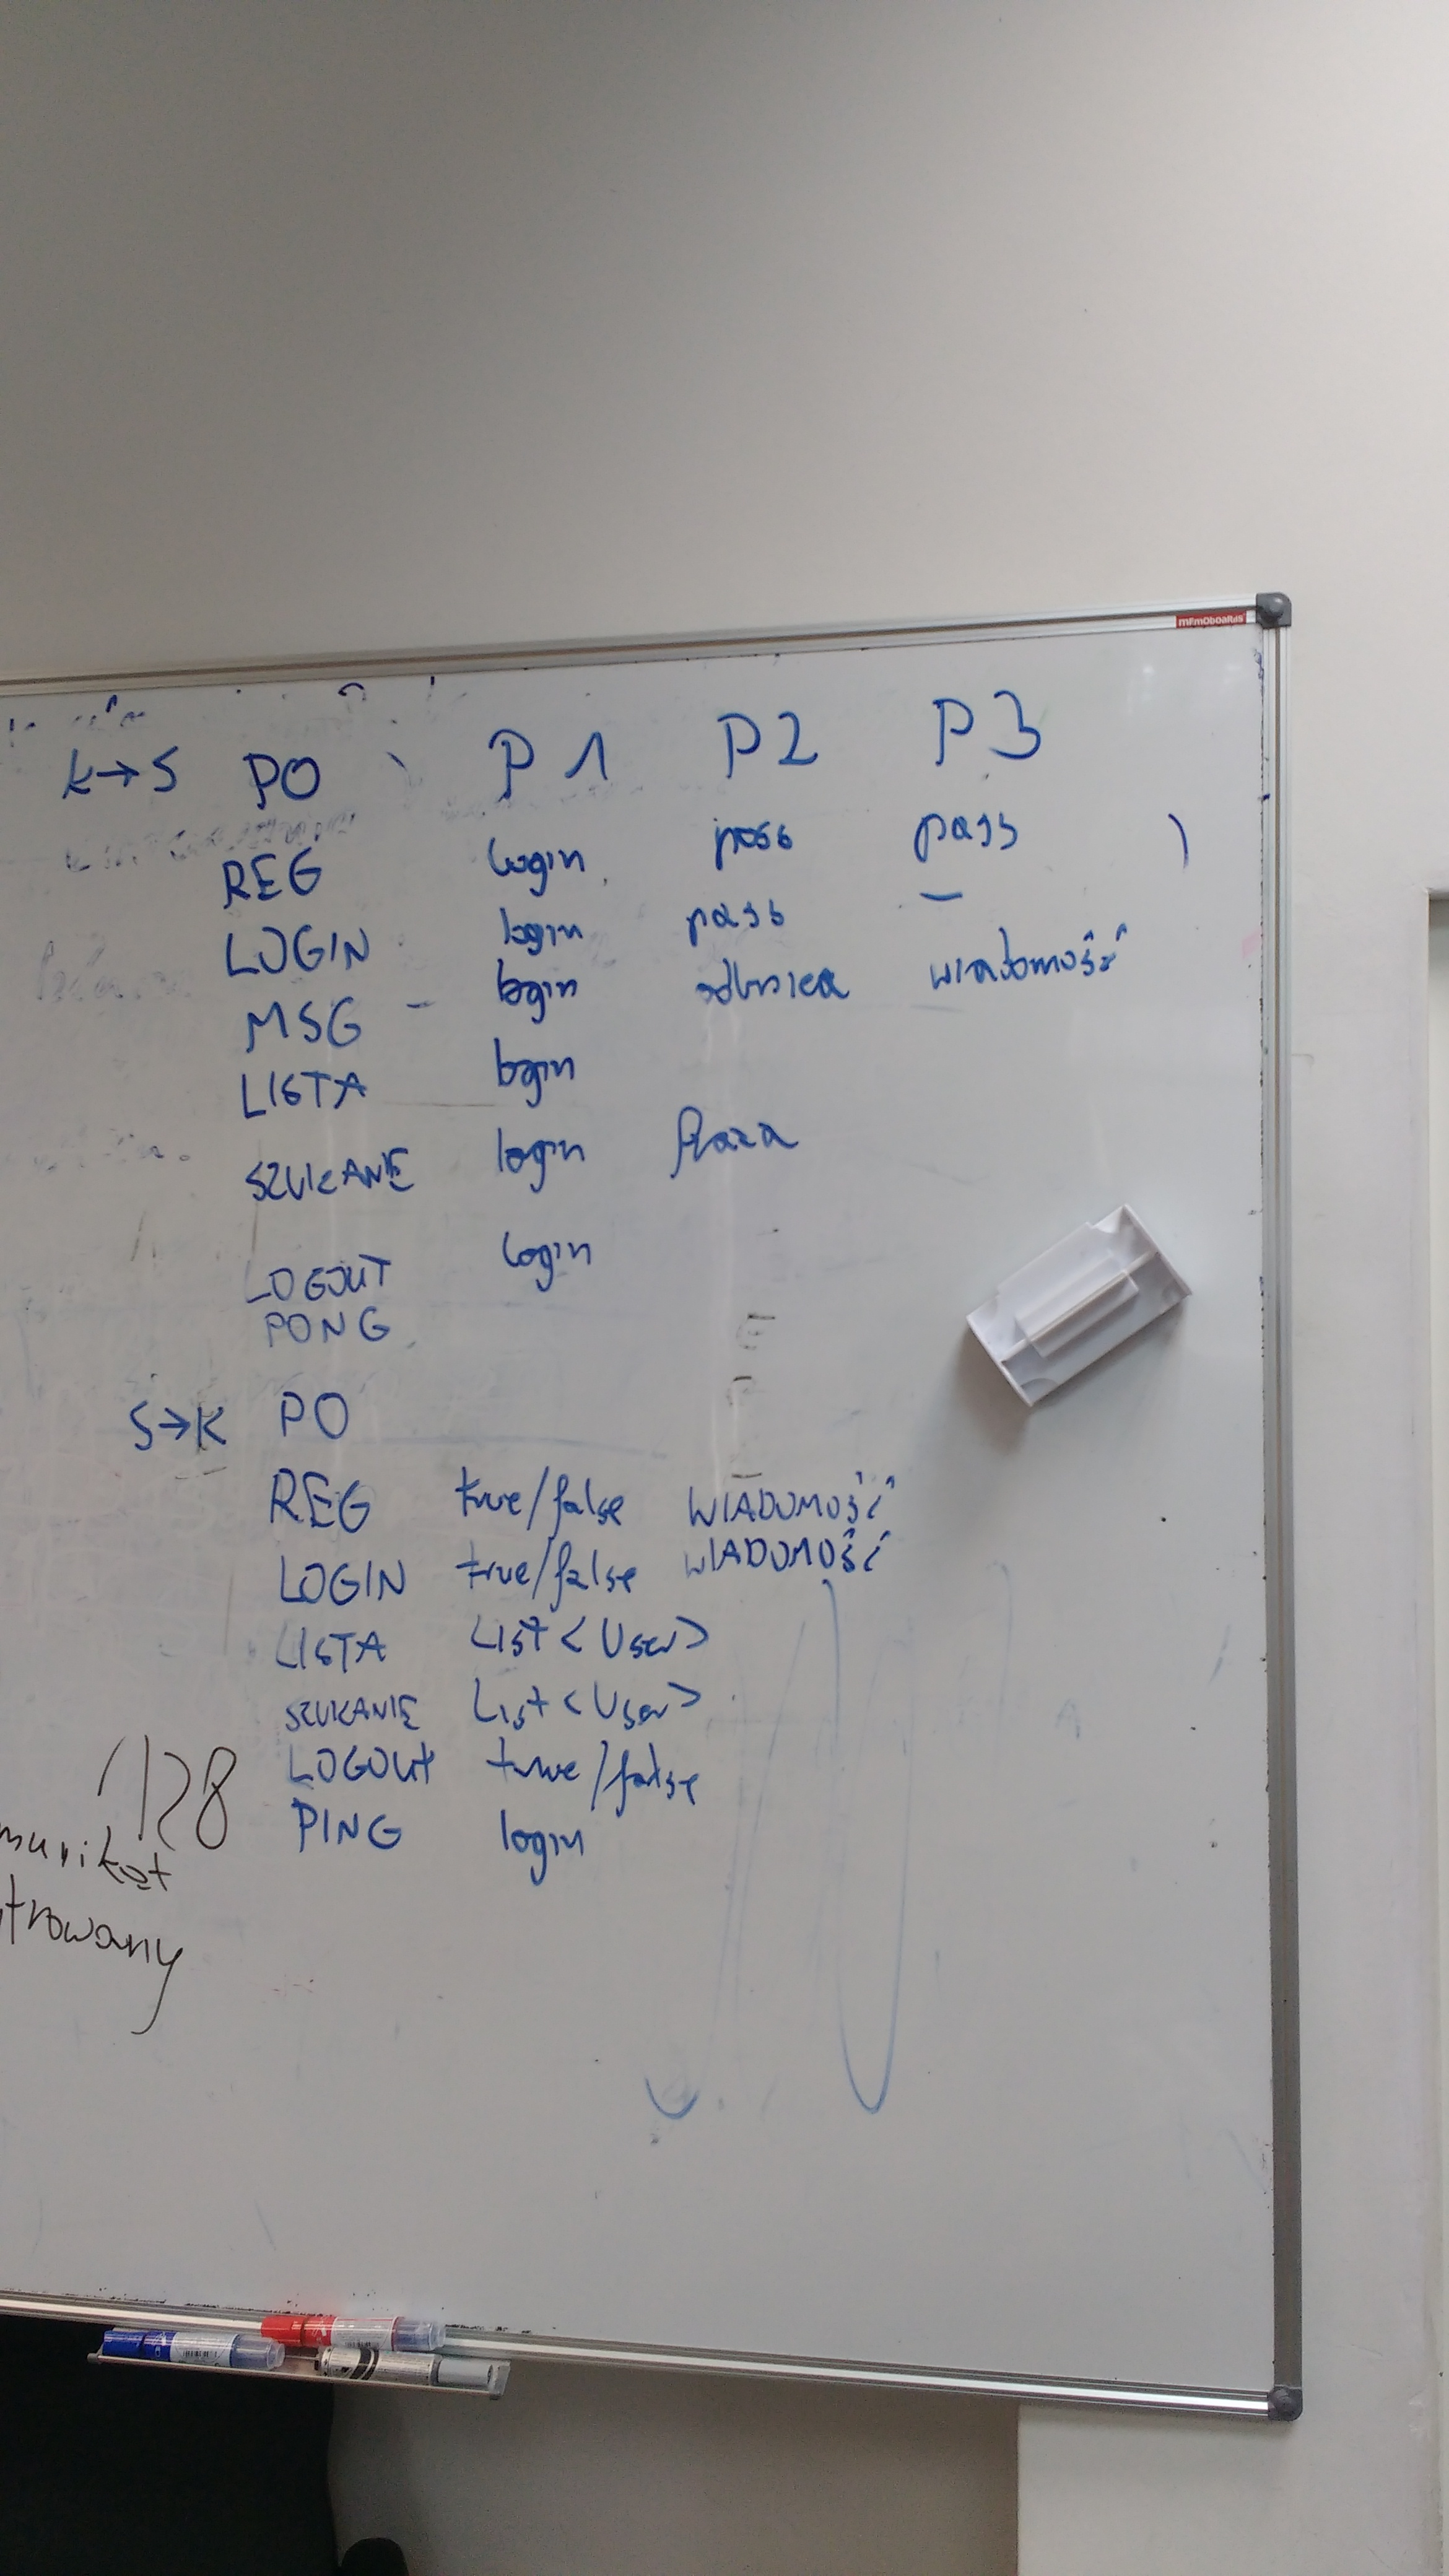 memoboards
K→S PO P1 P2 P3
REG login pass pass
LOGIN login pass —
MSG - login odbiorca wiadomość
LISTA login
SZUKANIE login fraza
LOGOUT login
PONG
S→K PO
REG true/false WIADOMOŚĆ
LOGIN true/false WIADOMOŚĆ
LISTA List<User>
SZUKANIE List<User>
LOGOUT true/false
PING login
128